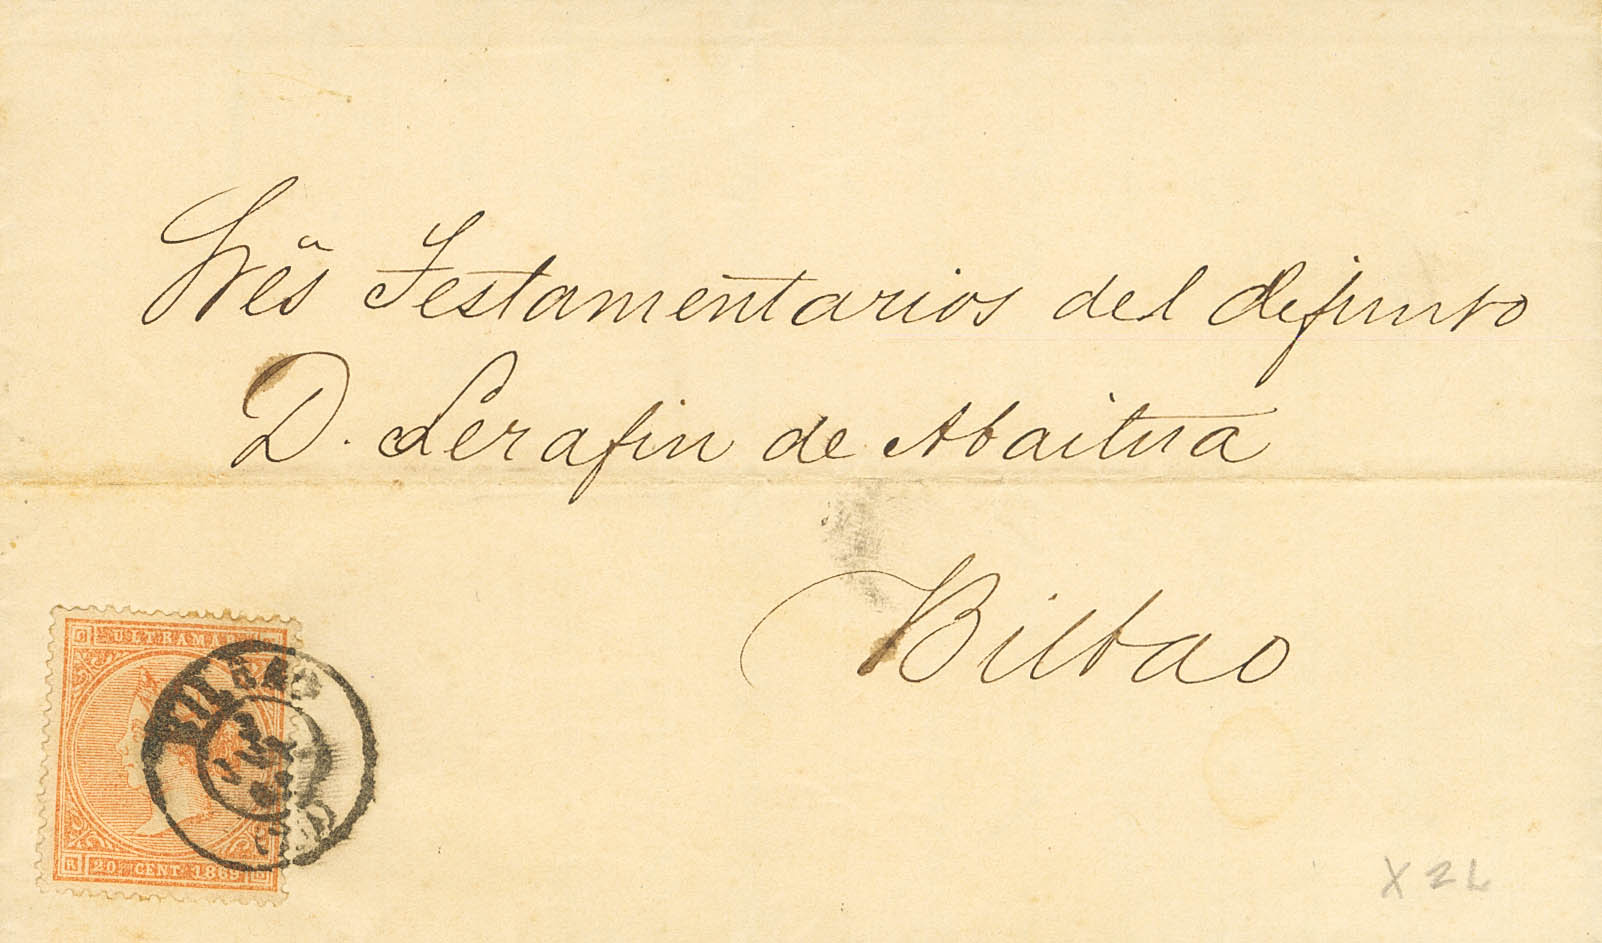 Sres Testamentarios del defunto
D. Serafin de Abaitua
Bilbao
C ULTRAMAR
BILBAO
R 20 CENT. 1869
X 2L